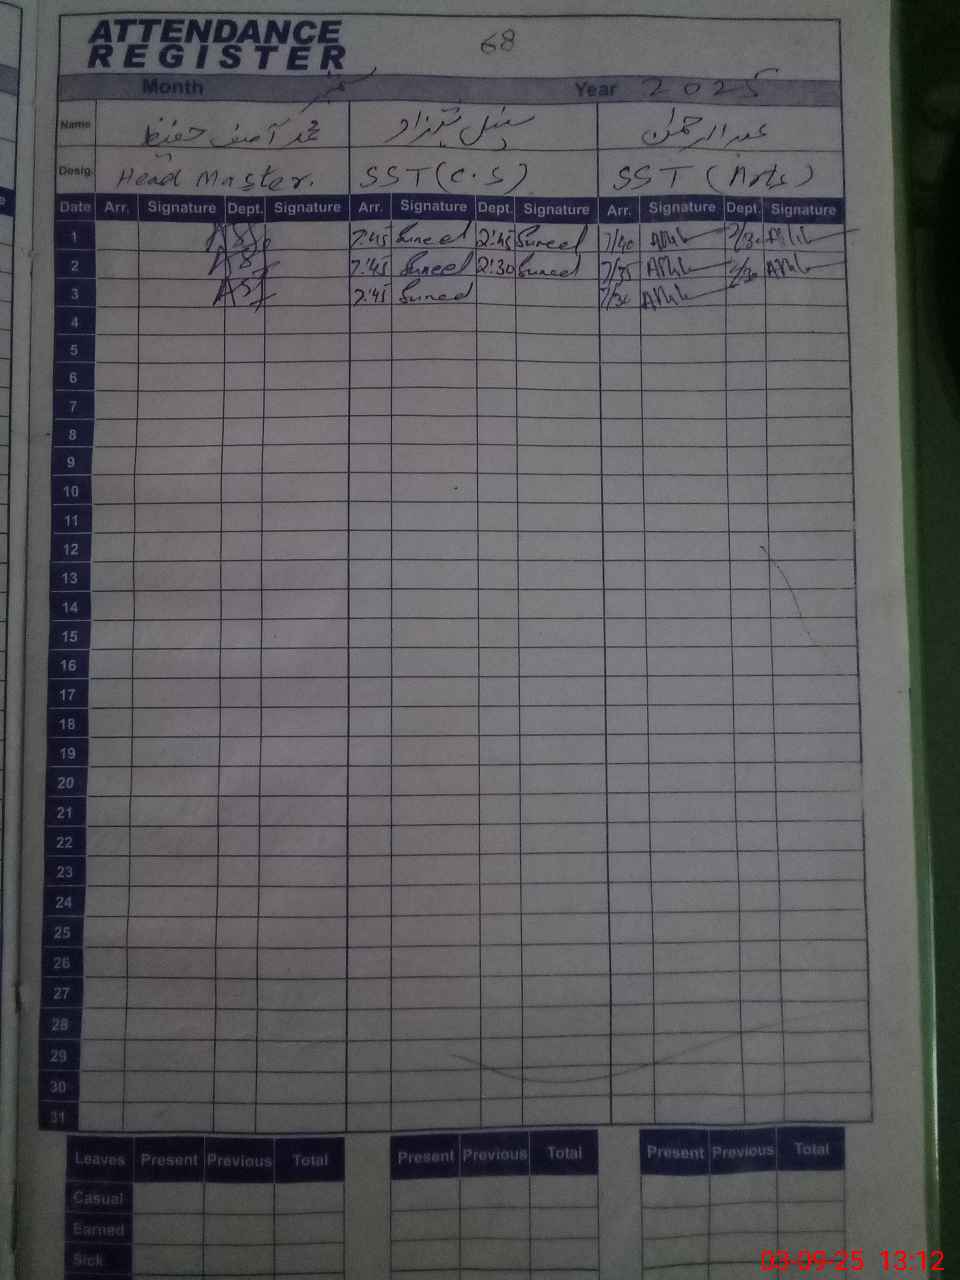 ATTENDANCE
REGISTER
68
Month ستمبر Year 2025
Name محمد آصف حفیظ سنیل شہزاد عبدالرحمن
Desig. Head Master. SST (C.S) SST (Arts)
Date Arr. Signature Dept. Signature Arr. Signature Dept. Signature Arr. Signature Dept. Signature
1 7:45 Suneel 2:45 Suneel 7/40
2 7:45 Suneel 2:30 Suneel 7/35
3 7:45 Suneel 7/30
4
5
6
7
8
9
10
11
12
13
14
15
16
17
18
19
20
21
22
23
24
25
26
27
28
29
30
31
Leaves Present Previous Total Present Previous Total Present Previous Total
Casual
Earned
Sick
03-09-25 13:12